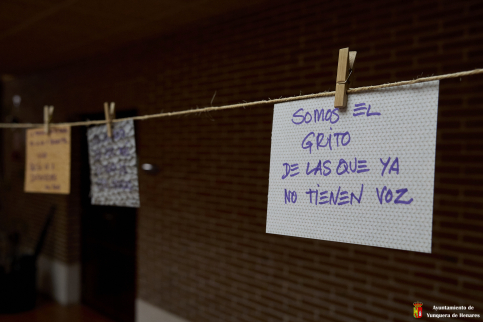 SOMOS EL
GRITO
DE LAS QUE YA
NO TIENEN VOZ
Ayuntamiento de
Yunquera de Henares